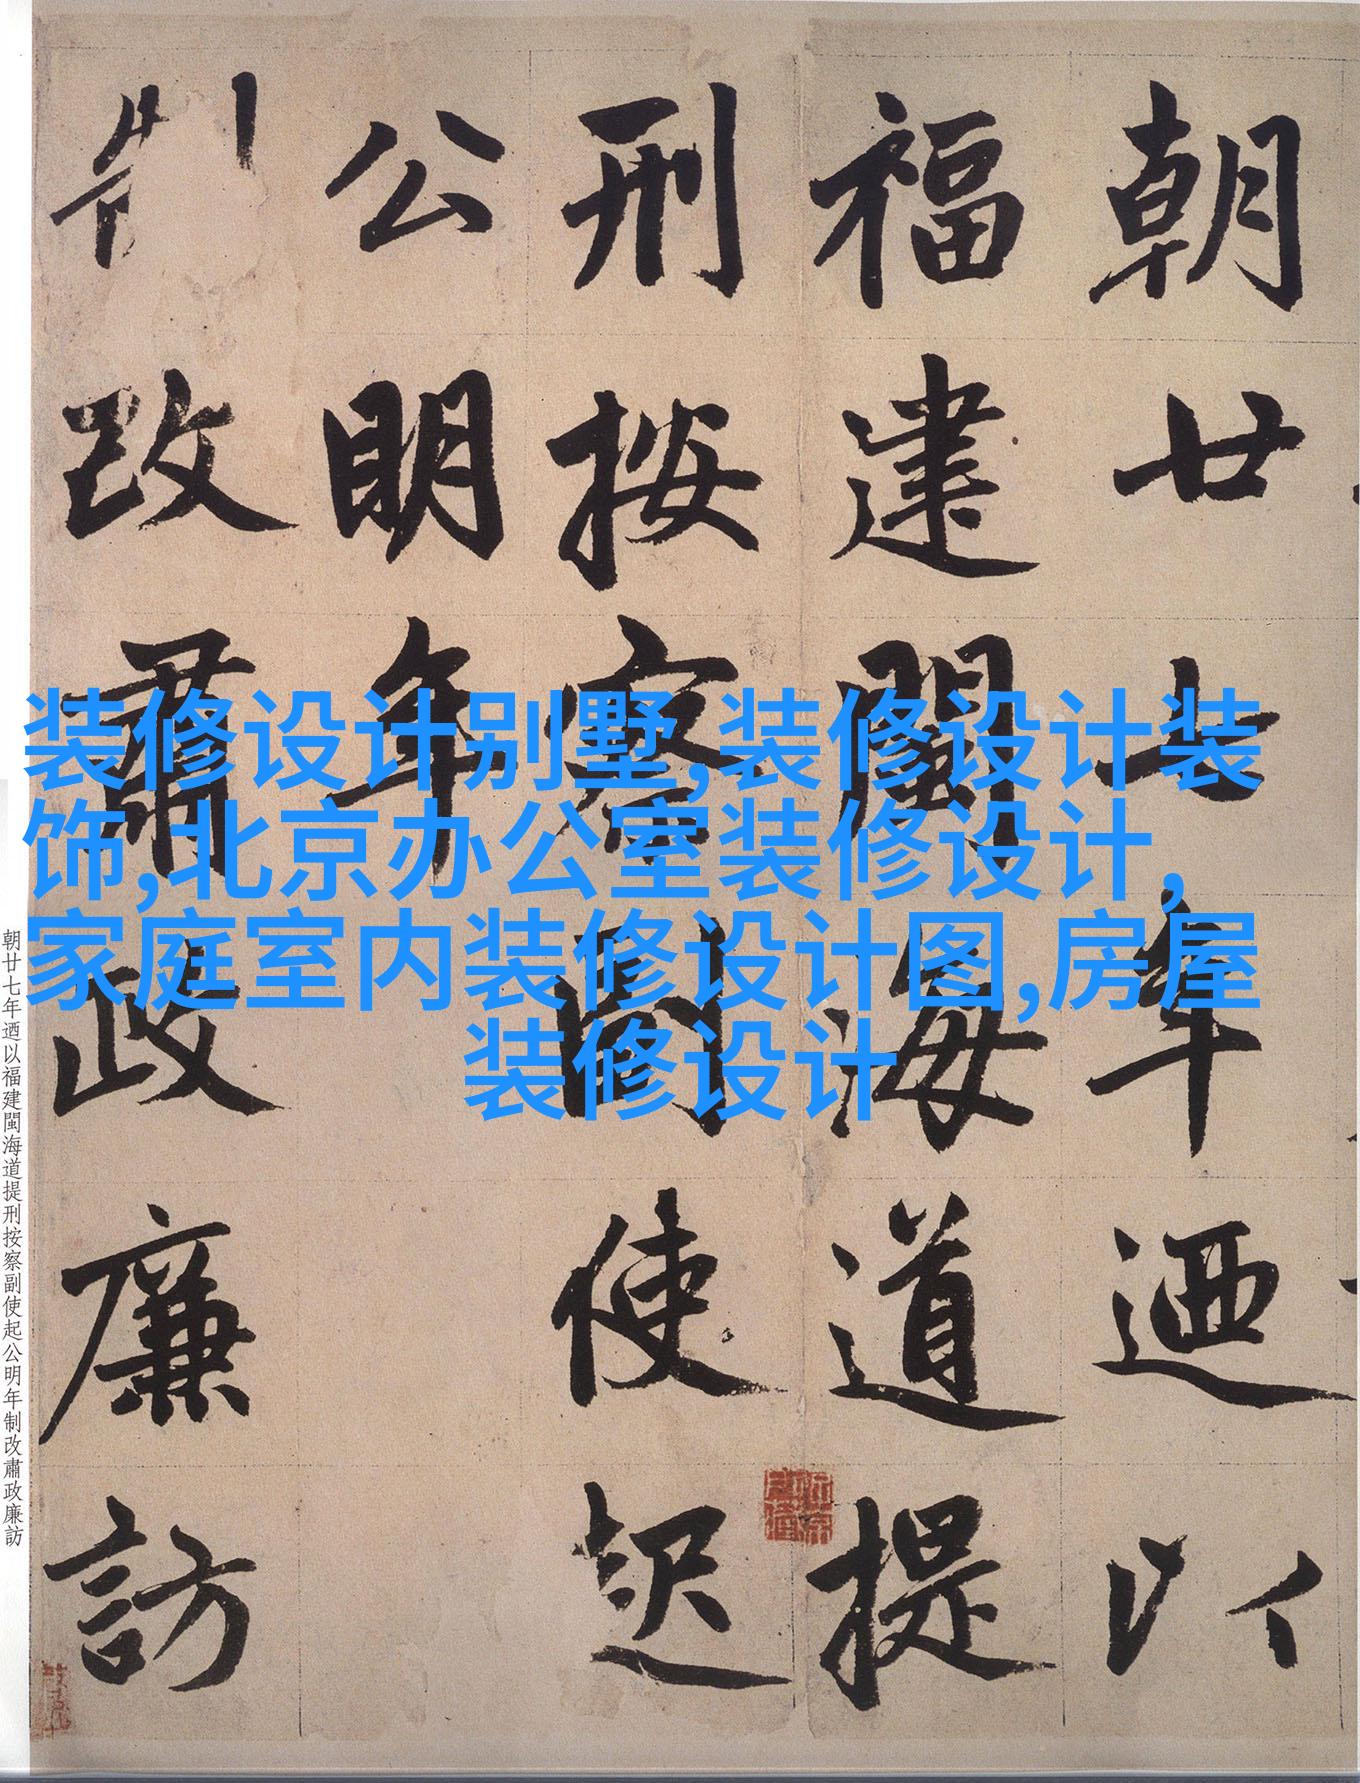 朝廿七年迺以
福建閩海道提
刑按察副使起
公明年
制改肅政廉訪
装修设计别墅,装修设计装
饰,北京办公室装修设计,
家庭室内装修设计图,房屋
装修设计
朝廿七年迺以福建閩海道提刑按察副使起公明年制改肅政廉訪